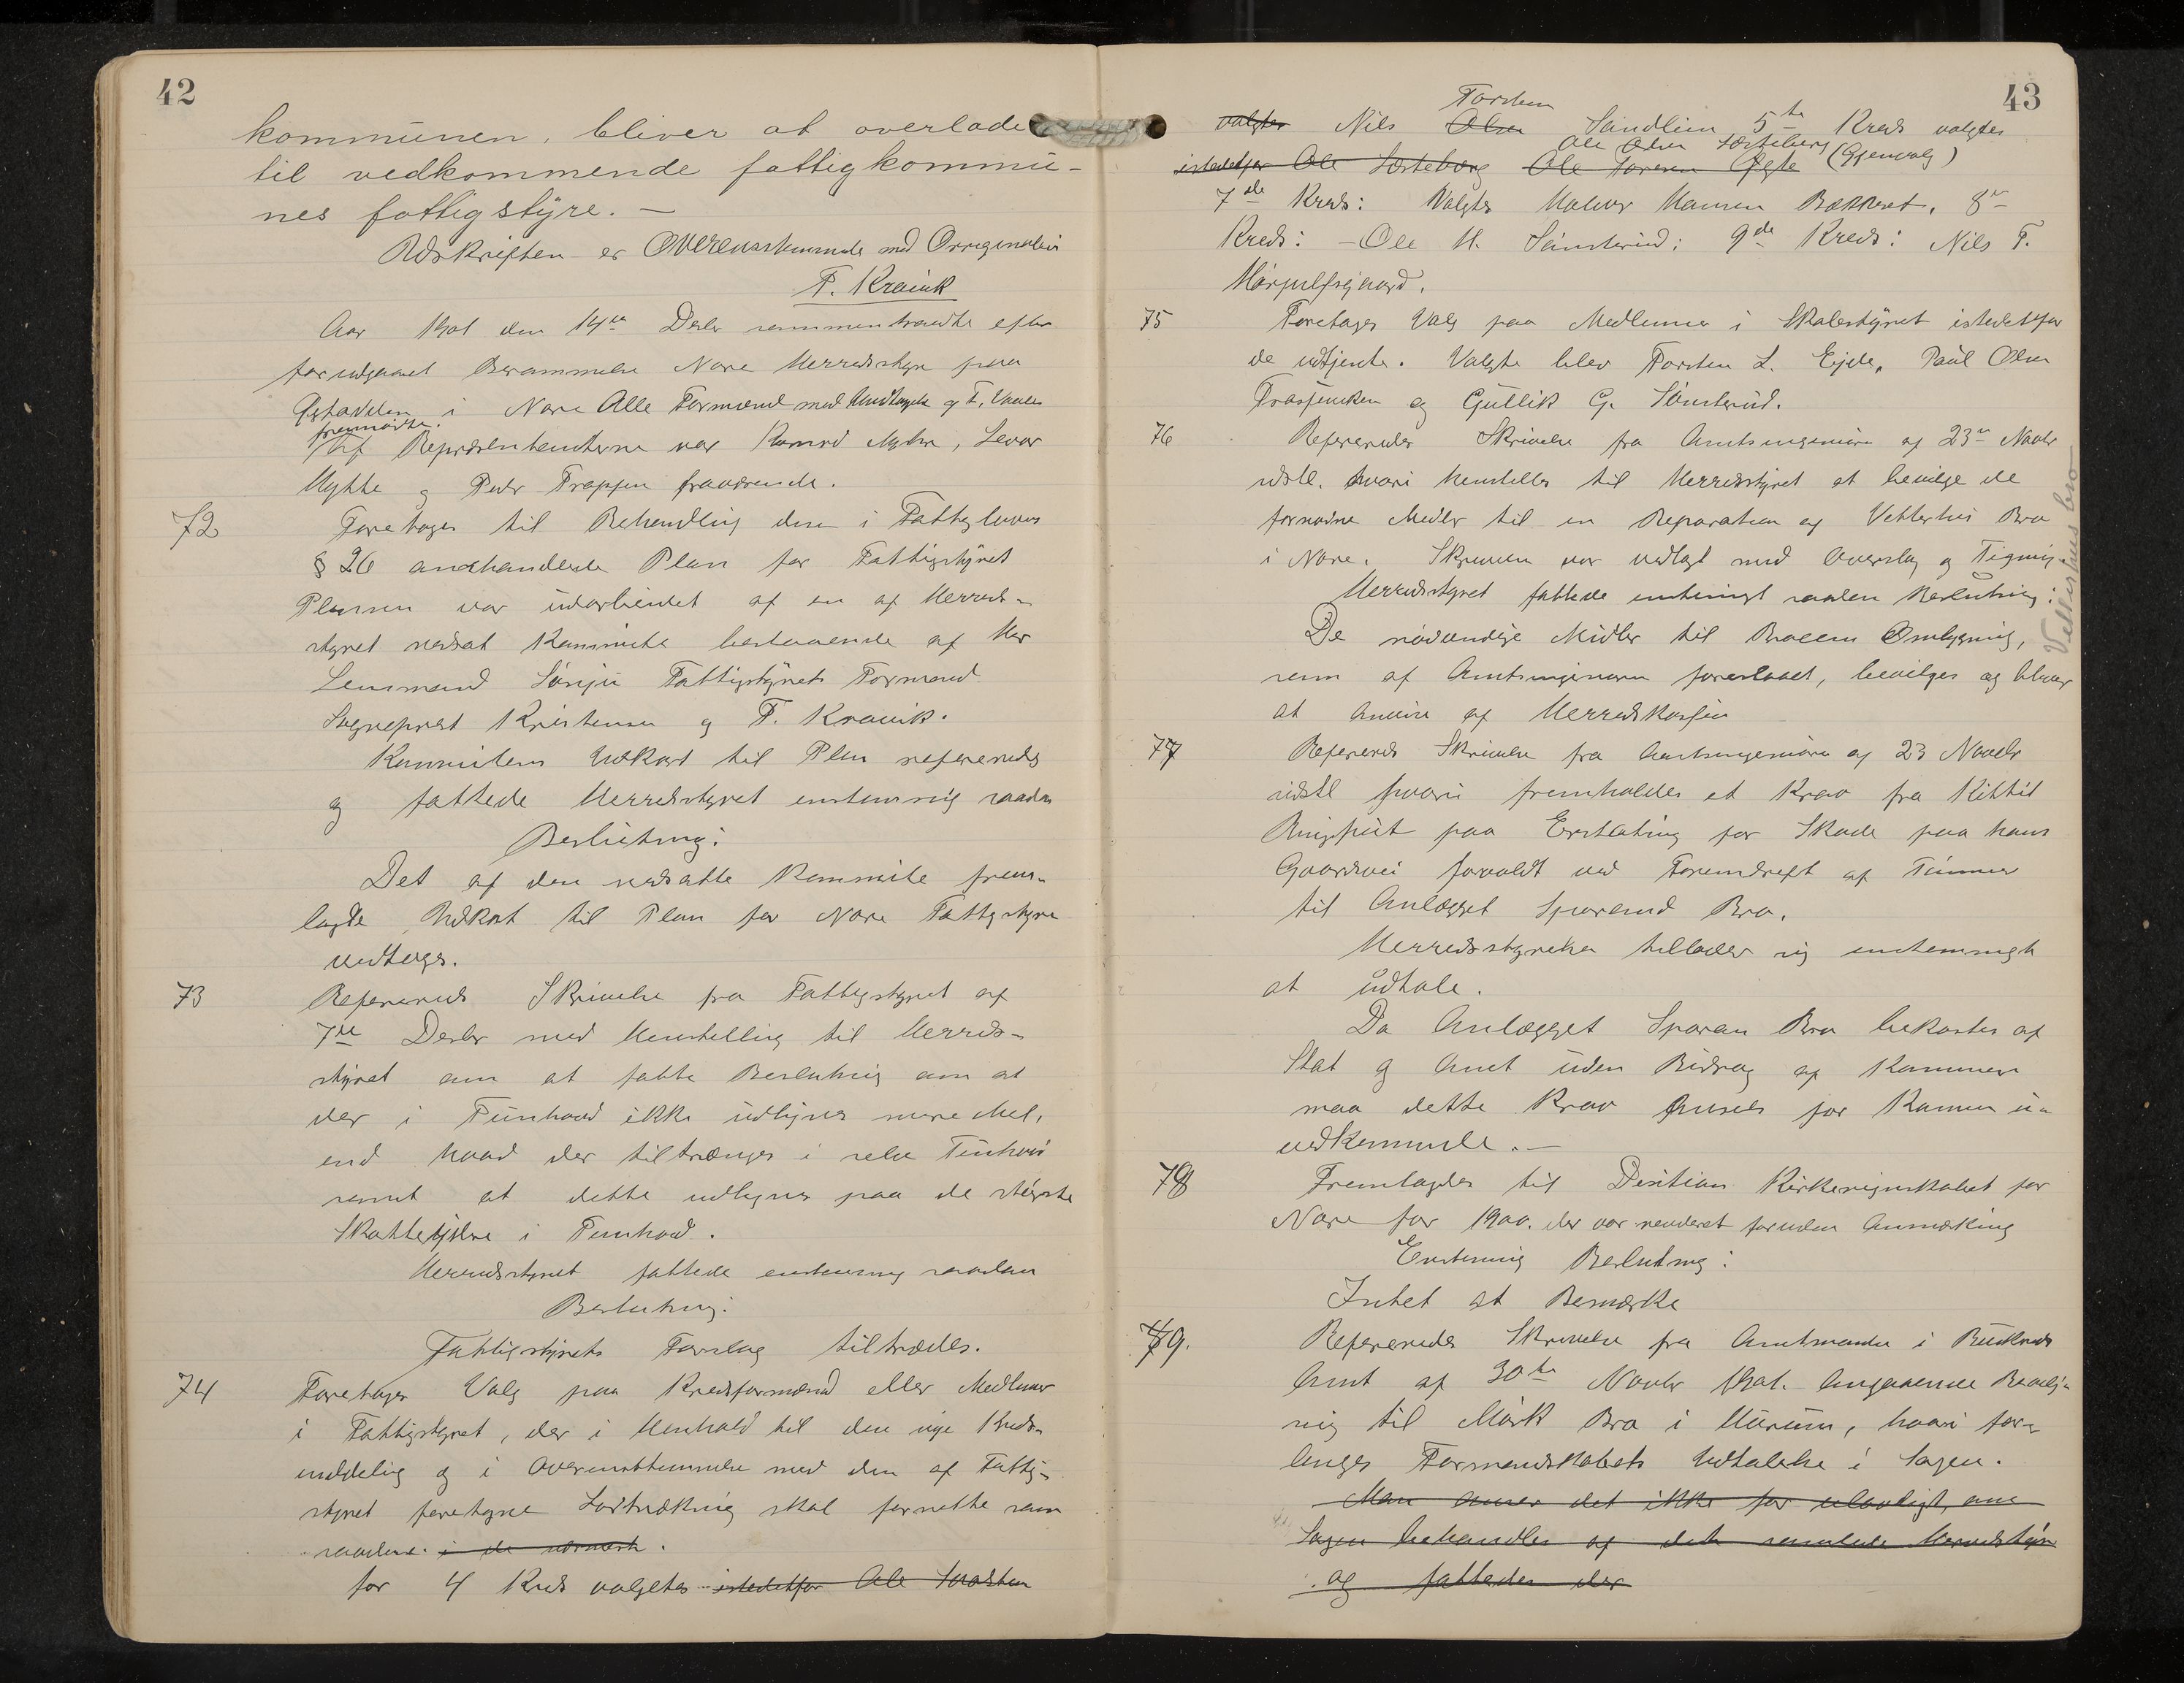 42
kommunen, bliver at overlade
til vedkommende fattigkommu-
nes fattigstyre. —
Udskriften er Overensstemmende med Orriginalen
T. Kravik
Aar 1901 den 14de Decbr sammentraadte efter
forudgaaet Berammelse Nore Herredsstyre paa
i Nore Alle Formænd med Undtagelse af T.
fremmødte.
Af Repræsentanterne var Myhre, Sevar
Hytte og Peder Trappen fraværende.
72 Foretages til Behandling den i Fattiglovens
§ 26 omhandlede Plan for Fattigstyret
Planen var udarbeidet af en af Herreds-
styret nedsat Kommite bestaaende af Hr
Lensmand Sønju Fattigstyrets Formand
Sogneprest Kristensen og T. Kravik.
Kommiteens Udkast til Plan refereredes
og fattede Herredsstyret enstemmig saadan
Beslutning:
Det af den nedsatte Kommite frem-
lagte Udkast til Plan for Nore Fattigstyre
vedtages.
73 Refereredes Skrivelse fra Fattigstyret af
7de Decbr med Henstilling til Herreds-
styret om at fatte Beslutning om at
der i Tunhovd ikke udlignes mere Mel,
end hvad der tiltrænges i selve Tunhovd
samt at dette udlignes paa de største
Skatteydere i Tunhovd.
Herredsstyret fattede enstemmig saadan
Beslutning:
Fattigstyrets Forslag tiltrædes.
74 Foretages Valg paa Kredsformænd eller Medlemmer
i Fattigstyret, der i Henhold til den nye Kreds-
inddeling og i Overensstemmelse med den af Fattig-
styret foretagne Lodtrækning skal forrette som
saadanne i de nærmeste.
for 4 Kreds valgtes istedetfor Ole
43
Torsten
valgtes Nils Olsen Sandlien 5te Kreds valgtes
Ole Olsen Sørteberg
istedetfor Ole Sørteberg Ole (Gjenvalg)
7de Kreds: Valgtes Halvor Hansen Bækkeret. 8de
Kreds: — Ole H. Sønsterud: 9de Kreds: Nils T.
75 Foretages Valg paa Medlemmer i Skolestyret istedetfor
de udtjente. Valgte blev Torsten L. Ejde, Paul Olsen
og Gullik G. Sønsterud.
76 Refereredes Skrivelse fra Amtsingeniøren af 23de Novbr
sidstl. hvori henstilles til Herredsstyret at bevilge de
fornødne Midler til en Reparation af Vetterhus Bro
i Nore. Skrivelsen var vedlagt med Overslag og Tegning
Herredsstyret fattede enstemmigt saadan Beslutning:
De nødvendige Midler til Broens Ombygning,
som af Amtsingeniøren foreslaaet, bevilges og bliver
at anvise af Herredskassen
Vetterhus bro
77 Refereredes Skrivelse fra Amtsingeniøren af 23 Novbr
sidstl hvori fremholdes et Krav fra Kittil
paa Erstatning for Skade paa hans
Gaardsvei forvoldt ved Fremdrift af Tømmer
til Anlægget Sporand Bro.
Herredsstyrelsen tillader sig enstemmigt
at udtale.
Da Anlægget Sporan Bro bekostes af
Stat og Amt uden Bidrag af Kommunen
maa dette Krav Ansees for Kommunen u-
vedkommende. —
78 Fremlagdes til Desition Kirkeregnskabet for
Nore for 1900. der var revideret foruden Anmærkning
Enstemmig Beslutning:
Intet at Bemærke
79. Refereredes Skrivelse fra Amtmanden i Buskeruds
Amt af 30te Novbr 1901. Angaaende Bevilg-
ning til Mørk Bro i Hurum, hvori for-
langes Formandskabets Udtalelse i Sagen.
Man anser det ikke for ulovligt, om
Sagen behandles af det samlede Herredsstyre
og fattedes der